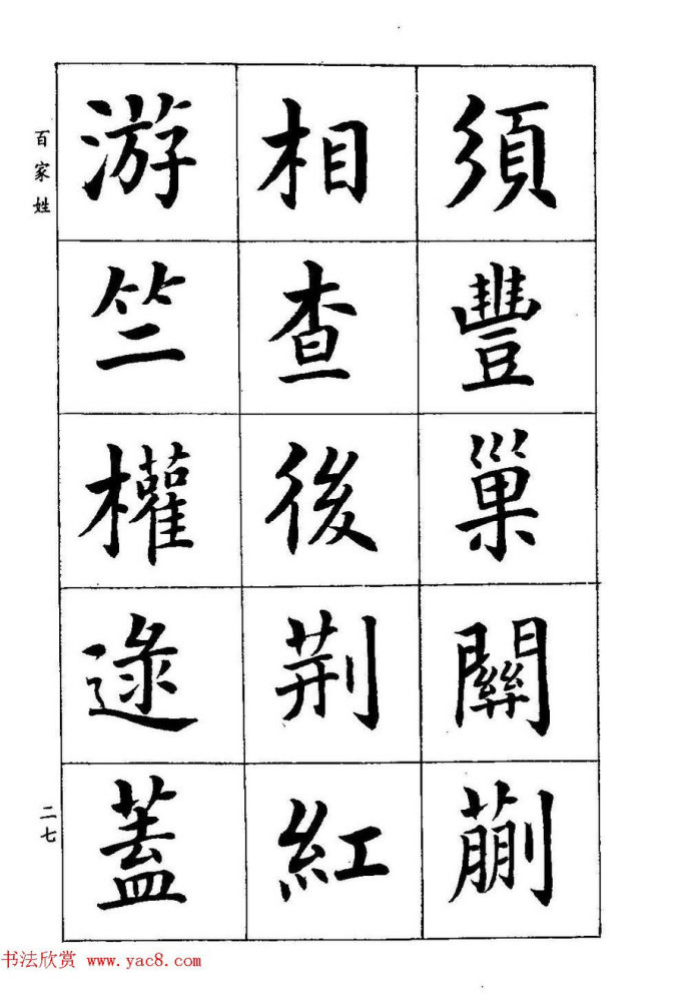 須豐巢關蒯
相查後荆紅
游竺權逯蓋
百家姓
二七
书法欣赏 www.yac8.com